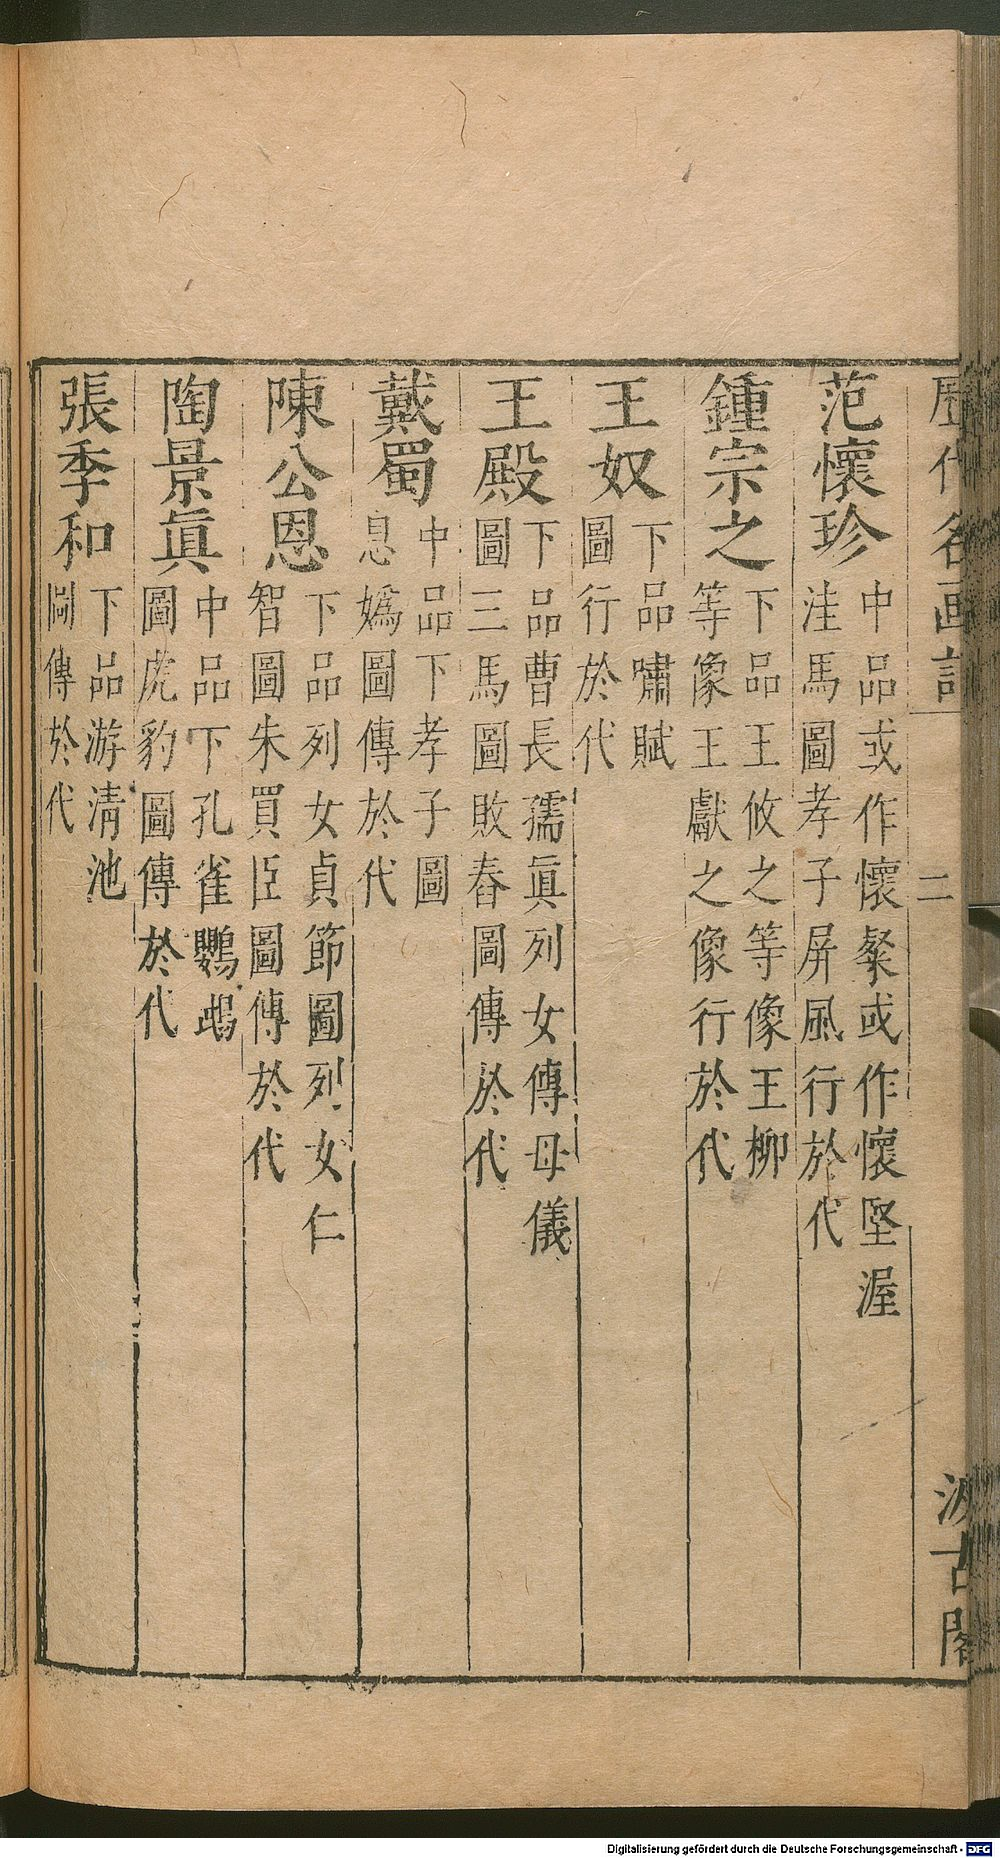 歷代名画記
二
汲古閣
范懷珍
中品或作懷粲或作懷堅渥
洼馬圖孝子屏風行於代
鍾宗之
下品王攸之等像王柳
等像王獻之像行於代
王奴
下品嘯賦
圖行於代
王殿
下品曹長孺眞列女傳母儀
圖三馬圖敗舂圖傳於代
戴蜀
中品下孝子圖
息嬀圖傳於代
陳公恩
下品列女貞節圖列女仁
智圖朱買臣圖傳於代
陶景眞
中品下孔雀鸚鵡
圖虎豹圖傳於代
張季和
下品游清池
圖傳於代
Digitalisierung gefördert durch die Deutsche Forschungsgemeinschaft - DFG